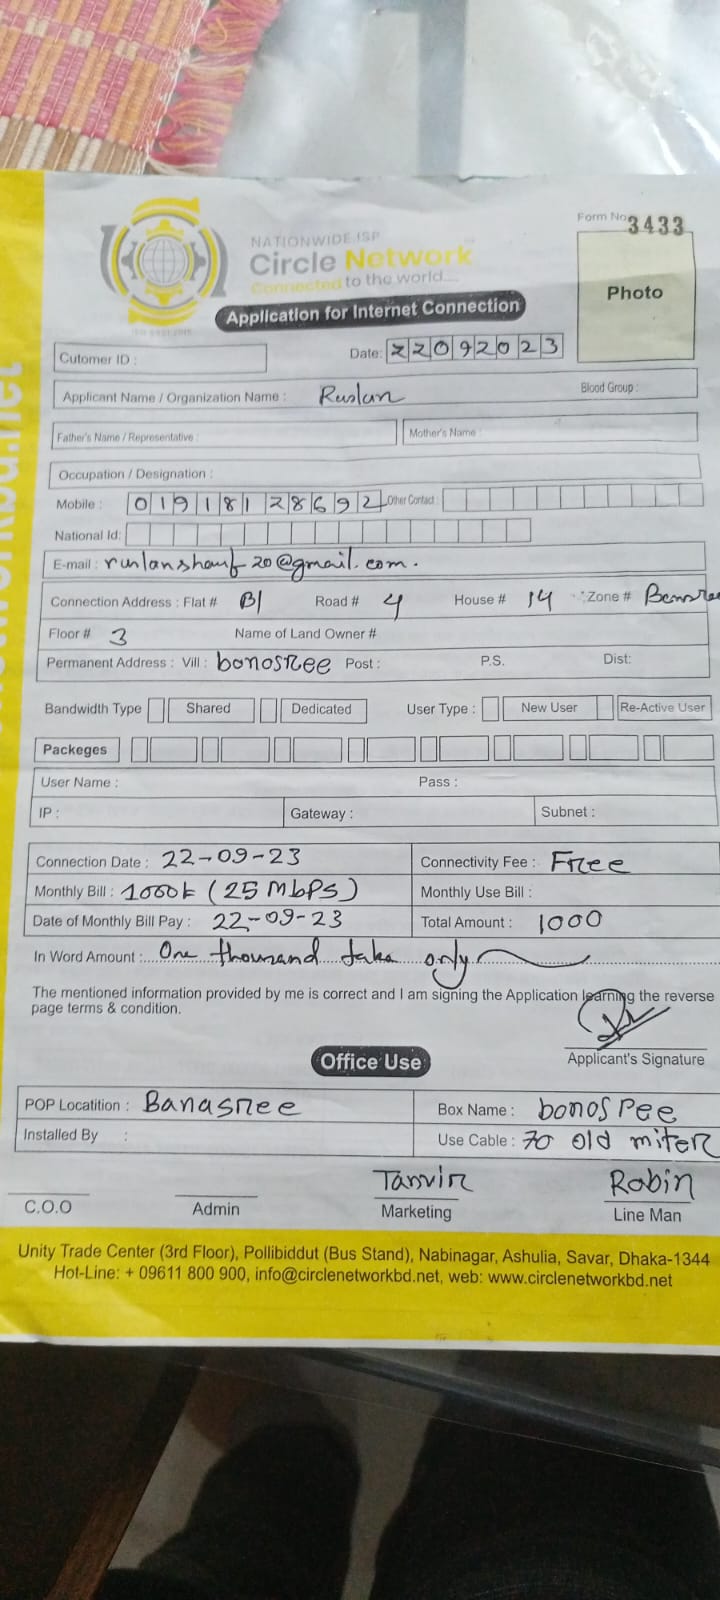 Form No 3433
NATIONWIDE ISP
Circle Network
Connected to the world....
Photo
Application for Internet Connection
Cutomer ID :
Date: 22092023
Applicant Name / Organization Name : Ruslan
Blood Group :
Father's Name / Representative :
Mother's Name :
Occupation / Designation :
Mobile : 01918128692 Other Contact :
National Id:
E-mail : ruslansharif20@gmail.com.
Connection Address : Flat # B1 Road # 4 House # 14 Zone #
Floor # 3 Name of Land Owner #
Permanent Address : Vill : bonosree Post : P.S. Dist:
Bandwidth Type Shared Dedicated User Type : New User Re-Active User
Packeges
User Name : Pass :
IP : Gateway : Subnet :
Connection Date : 22-09-23 Connectivity Fee : Free
Monthly Bill : 1000৳ (25 Mbps) Monthly Use Bill :
Date of Monthly Bill Pay : 22-09-23 Total Amount : 1000
In Word Amount : One thousand taka only
The mentioned information provided by me is correct and I am signing the Application learning the reverse
page terms & condition.
Applicant's Signature
Office Use
POP Locatition : Banasree Box Name : bonosree
Installed By : Use Cable : 70 old miter
Tanvir Robin
C.O.O Admin Marketing Line Man
Unity Trade Center (3rd Floor), Pollibiddut (Bus Stand), Nabinagar, Ashulia, Savar, Dhaka-1344
Hot-Line: + 09611 800 900, info@circlenetworkbd.net, web: www.circlenetworkbd.net